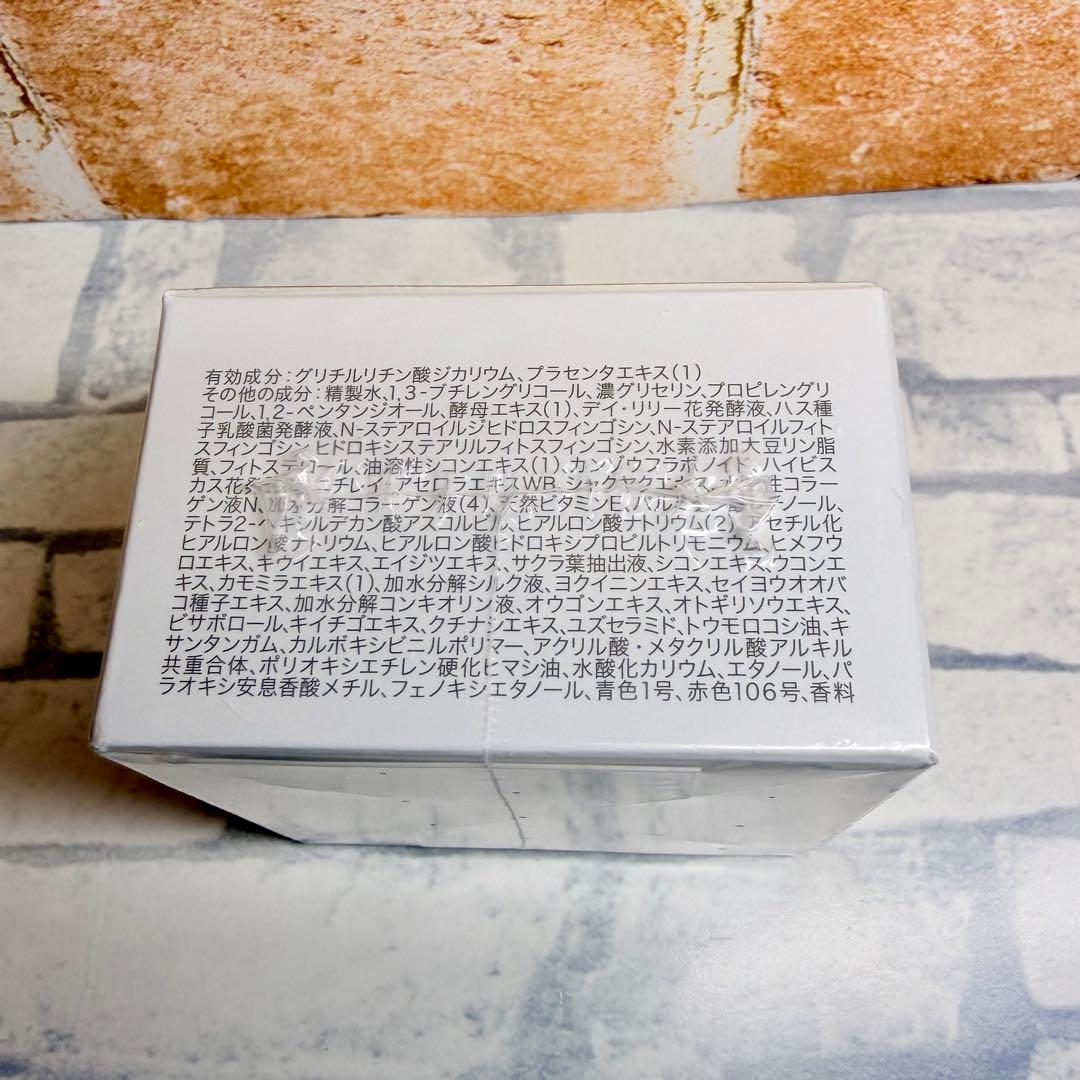 有効成分:グリチルリチン酸ジカリウム、プラセンタエキス(1)
その他の成分:精製水、1,3-ブチレングリコール、濃グリセリン、プロピレングリ
コール、1,2-ペンタンジオール、酵母エキス(1)、デイ・リリー花発酵液、ハス種
子乳酸菌発酵液、N-ステアロイルジヒドロスフィンゴシン、N-ステアロイルフィト
スフィンゴシン、ヒドロキシステアリルフィトスフィンゴシン、水素添加大豆リン脂
質、フィトステロール、油溶性シコンエキス(1)、カンゾウフラボノイド、ハイビス
カス花発 チレイ アセロラエキスWB、シャクヤクエキス、 性コラー
ゲン液N、加水分解コラーゲン液(4)、天然ビタミンE、パル チノール、
テトラ2-ヘキシルデカン酸アスコルビル、ヒアルロン酸ナトリウム(2)、アセチル化
ヒアルロン酸ナトリウム、ヒアルロン酸ヒドロキシプロピルトリモニウム、ヒメフウ
ロエキス、キウイエキス、エイジツエキス、サクラ葉抽出液、シコンエキス、ウコンエ
キス、カモミラエキス(1)、加水分解シルク液、ヨクイニンエキス、セイヨウオオバ
コ種子エキス、加水分解コンキオリン液、オウゴンエキス、オトギリソウエキス、
ビサボロール、キイチゴエキス、クチナシエキス、ユズセラミド、トウモロコシ油、キ
サンタンガム、カルボキシビニルポリマー、アクリル酸・メタクリル酸アルキル
共重合体、ポリオキシエチレン硬化ヒマシ油、水酸化カリウム、エタノール、パ
ラオキシ安息香酸メチル、フェノキシエタノール、青色1号、赤色106号、香料